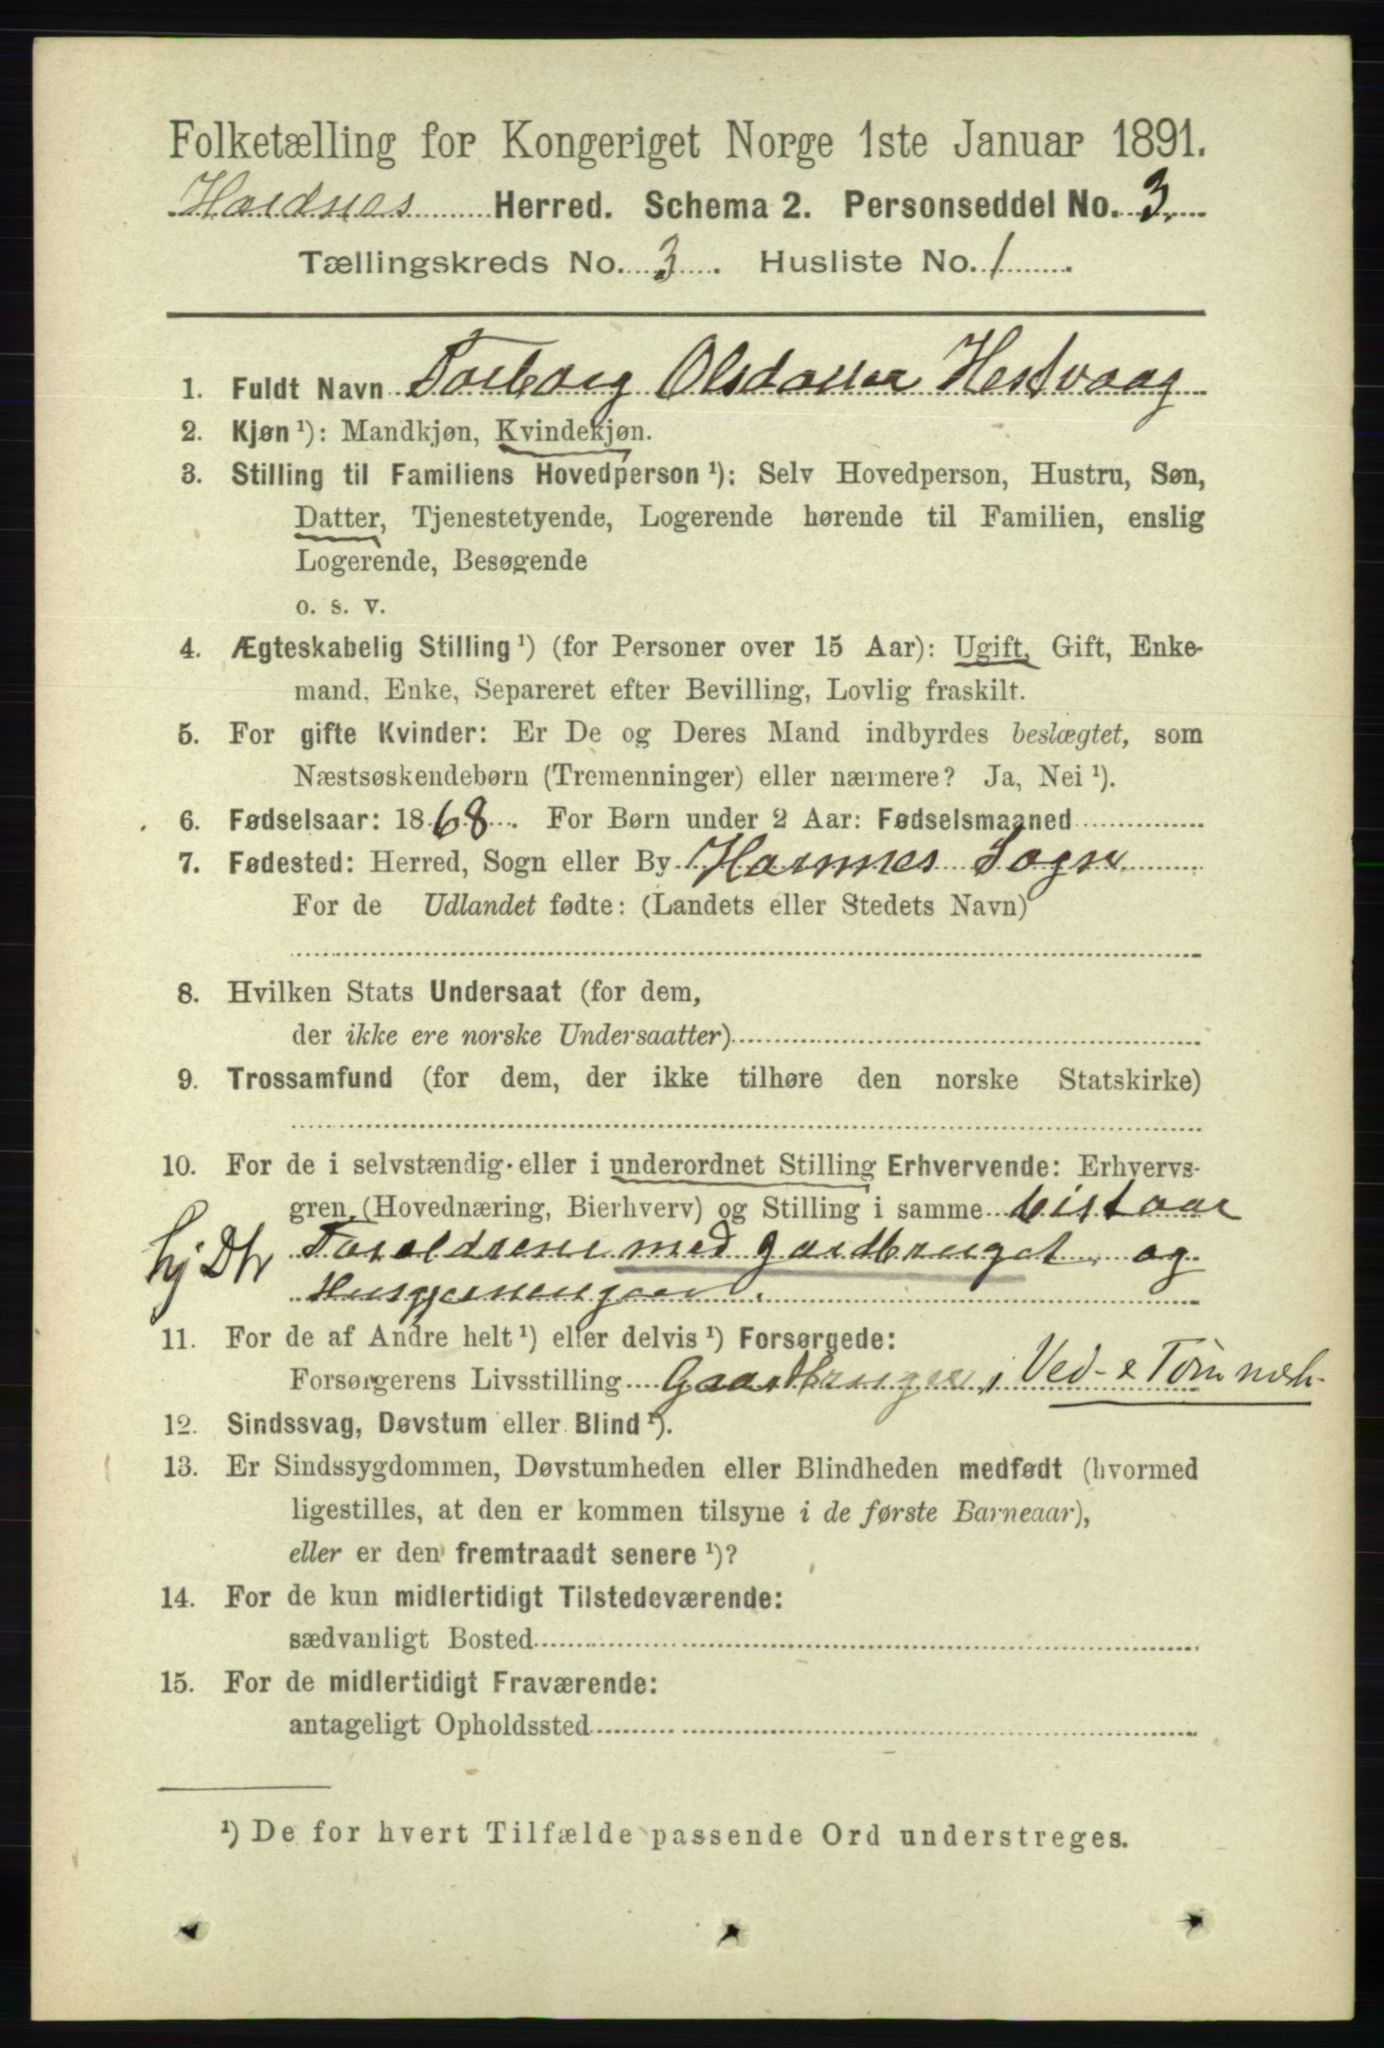 Folketælling for Kongeriget Norge 1ste Januar 1891.
Herred. Schema 2. Personseddel No. 3.
Tællingskreds No. 3. Husliste No. 1.
1. Fuldt Navn Torborg Olsdatter Hestvaag
2. Kjøn ¹): Mandkjøn, Kvindekjøn.
3. Stilling til Familiens Hovedperson ¹): Selv Hovedperson, Hustru, Søn,
Datter, Tjenestetyende, Logerende hørende til Familien, enslig
Logerende, Besøgende
o. s. v.
4. Ægteskabelig Stilling ¹) (for Personer over 15 Aar): Ugift, Gift, Enke-
mand, Enke, Separeret efter Bevilling, Lovlig fraskilt.
5. For gifte Kvinder: Er De og Deres Mand indbyrdes beslægtet, som
Næstsøskendebørn (Tremenninger) eller nærmere? Ja, Nei ¹).
6. Fødselsaar: 1868. For Børn under 2 Aar: Fødselsmaaned
7. Fødested: Herred, Sogn eller By Hornnes Sogn
For de Udlandet fødte: (Landets eller Stedets Navn)
8. Hvilken Stats Undersaat (for dem,
der ikke ere norske Undersaatter)
9. Trossamfund (for dem, der ikke tilhøre den norske Statskirke)
10. For de i selvstændig eller i underordnet Stilling Erhvervende: Erhvervs-
gren (Hovednæring, Bierhverv) og Stilling i samme bistaar
hj Dtr Foreldrene med gardbruget og
11. For de af Andre helt ¹) eller delvis ¹) Forsørgede:
Forsørgerens Livsstilling Gaardbruger, Ved- & Tømmerh.
12. Sindssvag, Døvstum eller Blind ¹).
13. Er Sindssygdommen, Døvstumheden eller Blindheden medfødt (hvormed
ligestilles, at den er kommen tilsyne i de første Barneaar),
eller er den fremtraadt senere ¹)?
14. For de kun midlertidigt Tilstedeværende:
sædvanligt Bosted
15. For de midlertidigt Fraværende:
antageligt Opholdssted
¹) De for hvert Tilfælde passende Ord understreges.